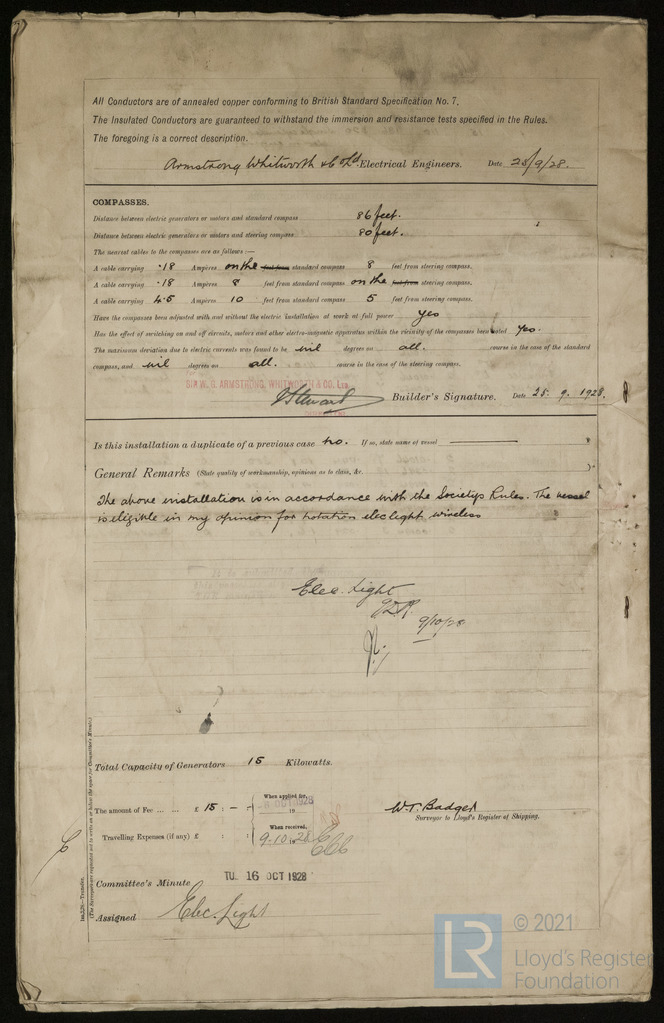 All Conductors are of annealed copper conforming to British Standard Specification No. 7.
The Insulated Conductors are guaranteed to withstand the immersion and resistance tests specified in the Rules.
The foregoing is a correct description.
Armstrong Whitworth & Co Ld Electrical Engineers. Date 28/9/28.
COMPASSES.
Distance between electric generators or motors and standard compass 86 feet.
Distance between electric generators or motors and steering compass 80 feet.
The nearest cables to the compasses are as follows:—
A cable carrying ·18 Ampères on the feet from standard compass 8 feet from steering compass.
A cable carrying ·18 Ampères 8 feet from standard compass on the feet from steering compass.
A cable carrying 4·5 Ampères 10 feet from standard compass 5 feet from steering compass.
Have the compasses been adjusted with and without the electric installation at work at full power yes
Has the effect of switching on and off circuits, motors and other electro-magnetic apparatus within the vicinity of the compasses been noted yes.
The maximum deviation due to electric currents was found to be nil degrees on all. course in the case of the standard
compass, and nil degrees on all. course in the case of the steering compass.
SIR W. G. ARMSTRONG, WHITWORTH & CO. LTD.
Builder's Signature. Date 28. 9. 1928
Is this installation a duplicate of a previous case no. If so, state name of vessel
General Remarks (State quality of workmanship, opinions as to class, &c. )
The above installation is in accordance with the Societys Rules. The vessel
is eligible in my opinion for notation elec light wireless
Elec. Light
9/10/28
Total Capacity of Generators 15 Kilowatts.
The amount of Fee ... ... £ 15 : - : When applied for,
19
Travelling Expenses (if any) £ : : When received,
9.10.28
W.T. Badger
Surveyor to Lloyd's Register of Shipping.
Committee's Minute TU. 16 OCT 1928
Assigned Elec. Light
© 2021
LR
Lloyd's Register
Foundation